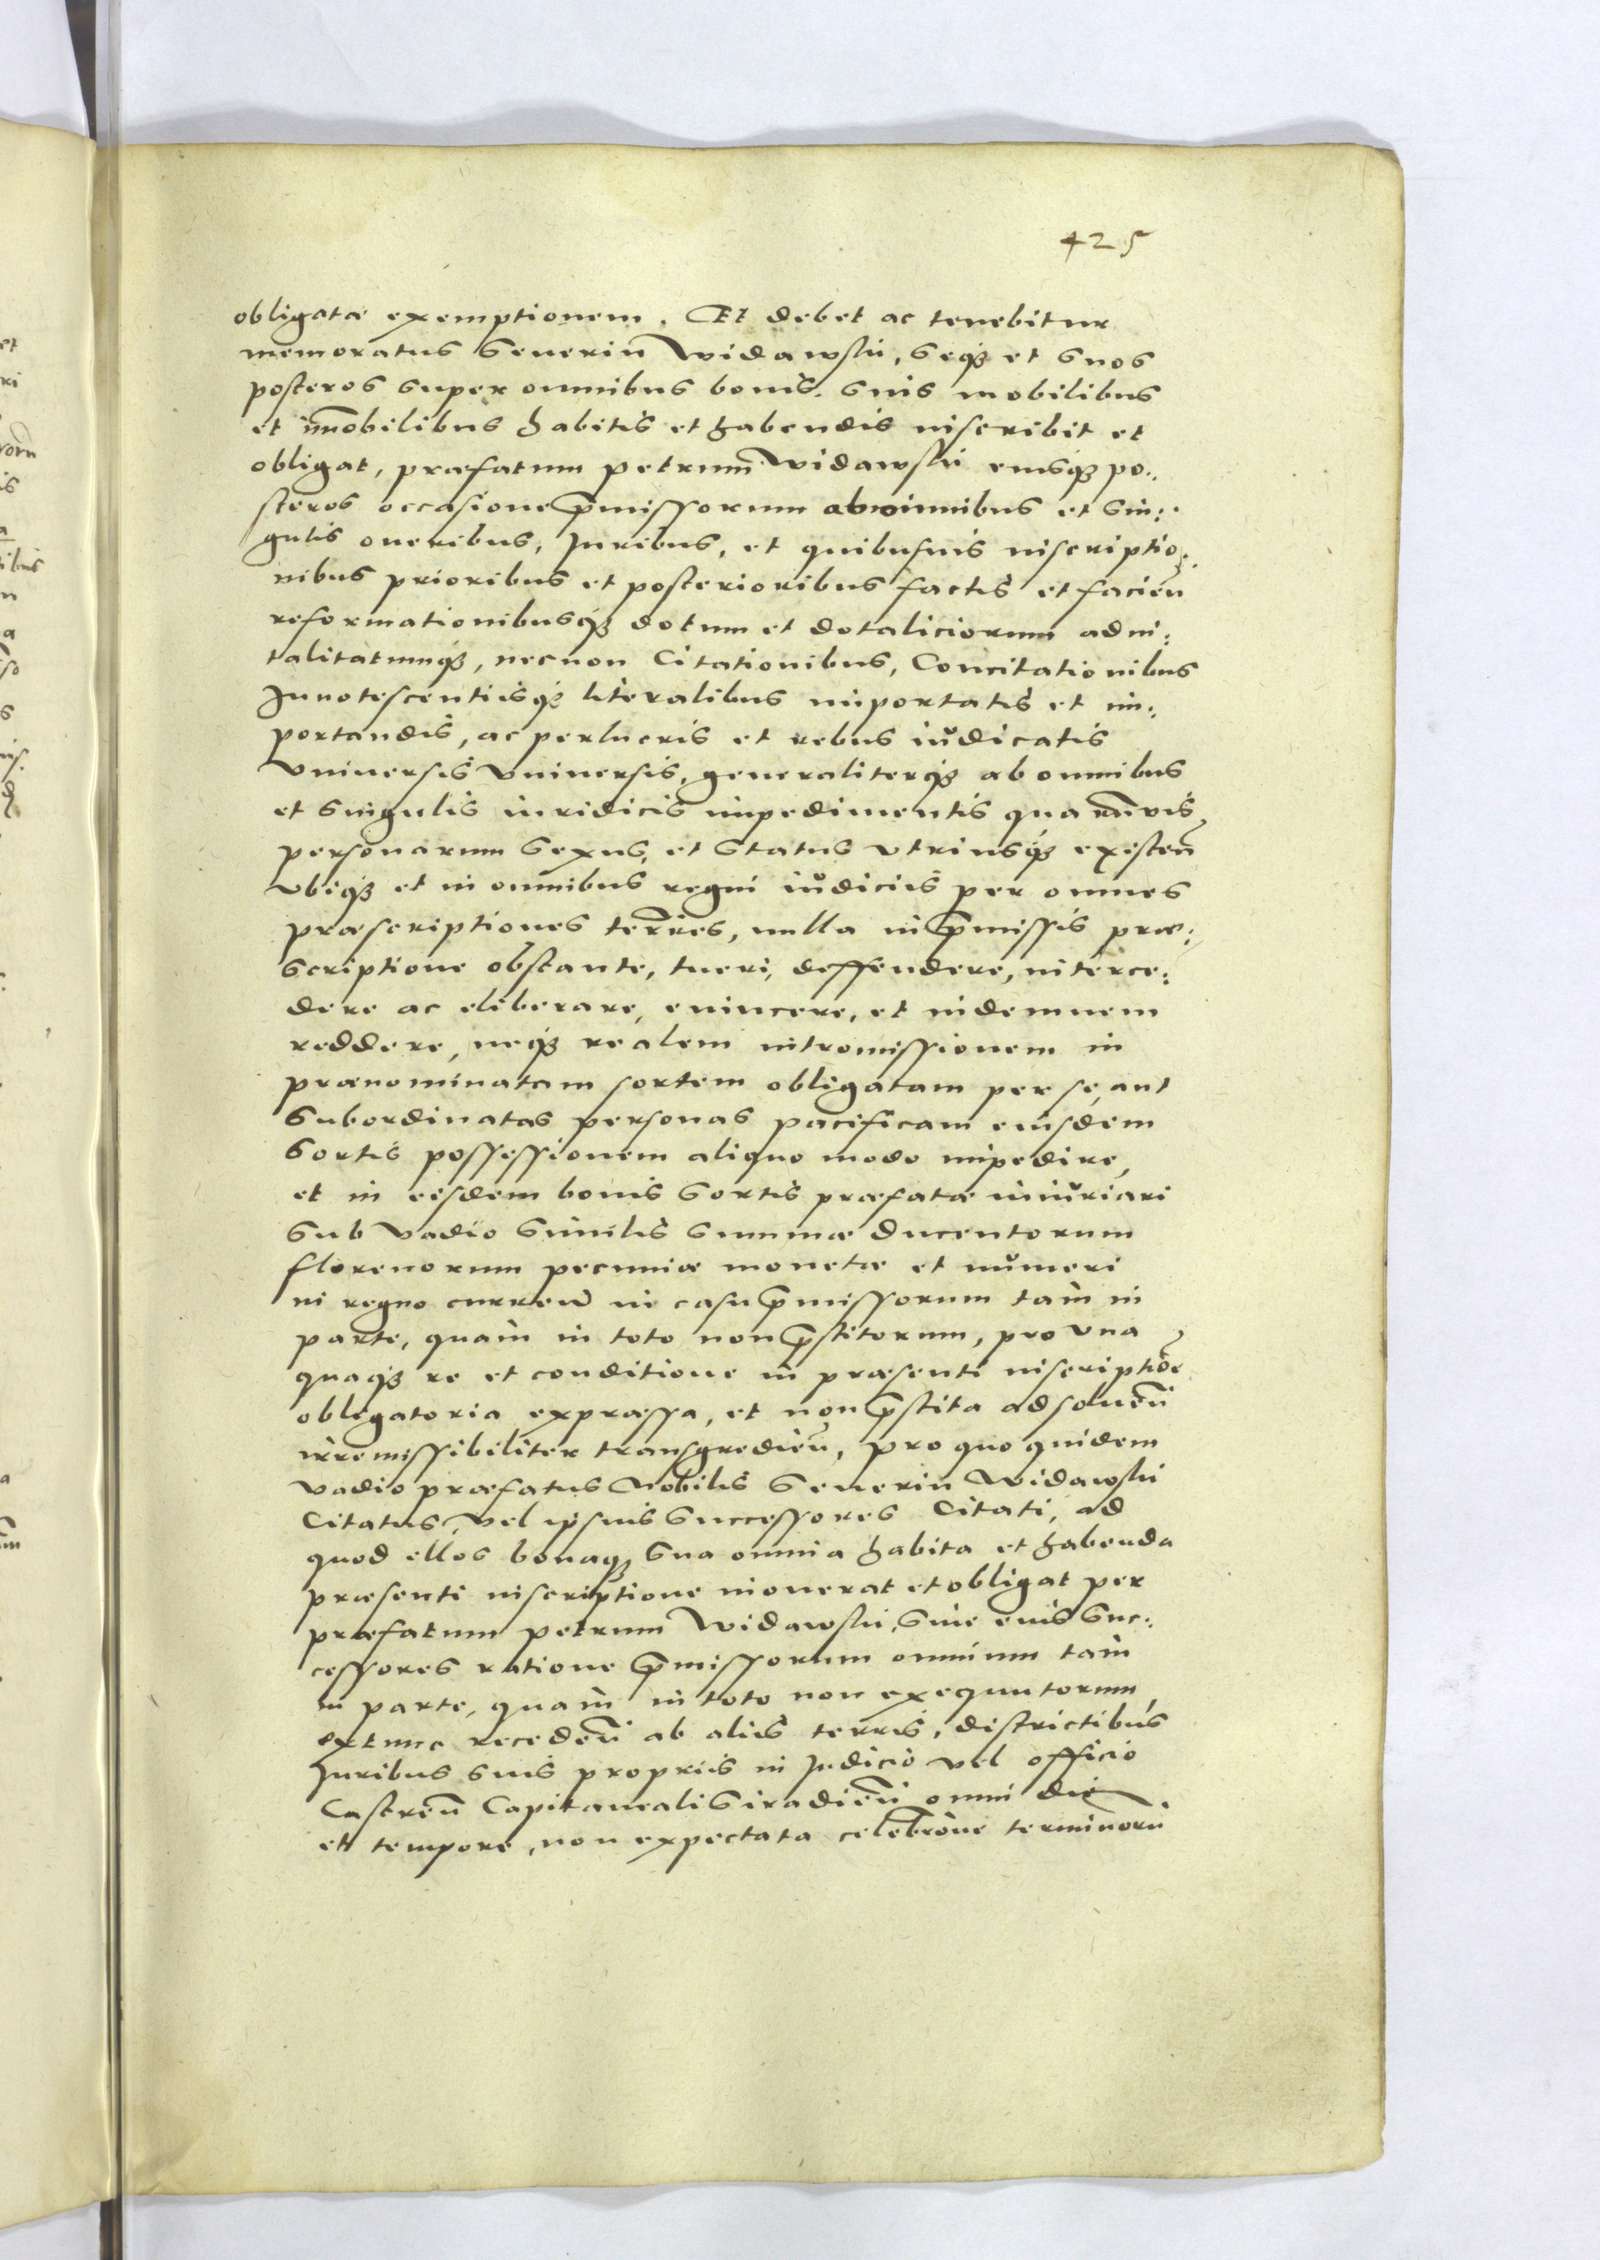 425
obligatæ exemptionem. Et debet ac tenebitur
memoratus Seuerin Widawski, seqз et suos
posteros super omnibus bonis suis mobilibus
et im̄obilibus habitis et habendis inscribit et
obligat, præfatum petrum Widawski eiusqз po:
steros occasione p̄missorum ab omnibus et sin:
gulis oneribus, Juribus, et quibusuis inscriptio:
nibus prioribus et posterioribus factis et facien̄
reformationibusqз dotum et dotaliciorum advi:
talitatumqз, necnon Citationibus, Concitationibus
Innotescentiisqз literalibus importatis et im:
portandis, ac perlucris et rebus iudicatis
vniuersis vniuersis, generaliterqз ab omnibus
et singulis iuridicis impedimentis quarumvis
personarum sexus, et status vtriusqз existen̄
vbiqз et in omnibus regni iudiciis per omnes
præscriptiones terr̄res, nulla in p̄missis præ:
scriptione obstante, tueri, deffendere, interce:
dere ac eliberare, euincere, et indemnem
reddere, neqз realem intromissionem in
prænominatam sortem obligatam per se, aut
subordinatas personas pacificam eiusdem
sortis possessionem aliquo modo impedire,
et in eisdem bonis sortis præfatæ iniuriari
sub vadio similis summæ ducentorum
florenorum pecuniæ monetæ et numeri
in regno curren̄ in casu p̄missorum tam in
parte, quam in toto non p̄stitorum, pro vna
quaqз re et conditione in præsenti inscriptiōe
obligatoria expræssa, et non p̄stita ad soluen̄
irremissibiliter transgredien̄, pro quo quidem
vadio præfatus Nobilis Seuerin Widawski
Citatus, vel ipsius successores Citati, ad
quod ellos bonaqз sua omnia habita et habenda
præsenti inscriptione inonerat et obligat per
præfatum petrum Widawski, siue eius suc:
cessores ratione p̄missorum omnium tam
in parte, quam in toto non exequutorum,
extunc receden̄ ab aliis terris, districtibus
Juribus suis propriis in Judicio vel officio
Castren̄ Capitaneali Siradien̄ omni die
et tempore, non expectata celebr̄one terminorū